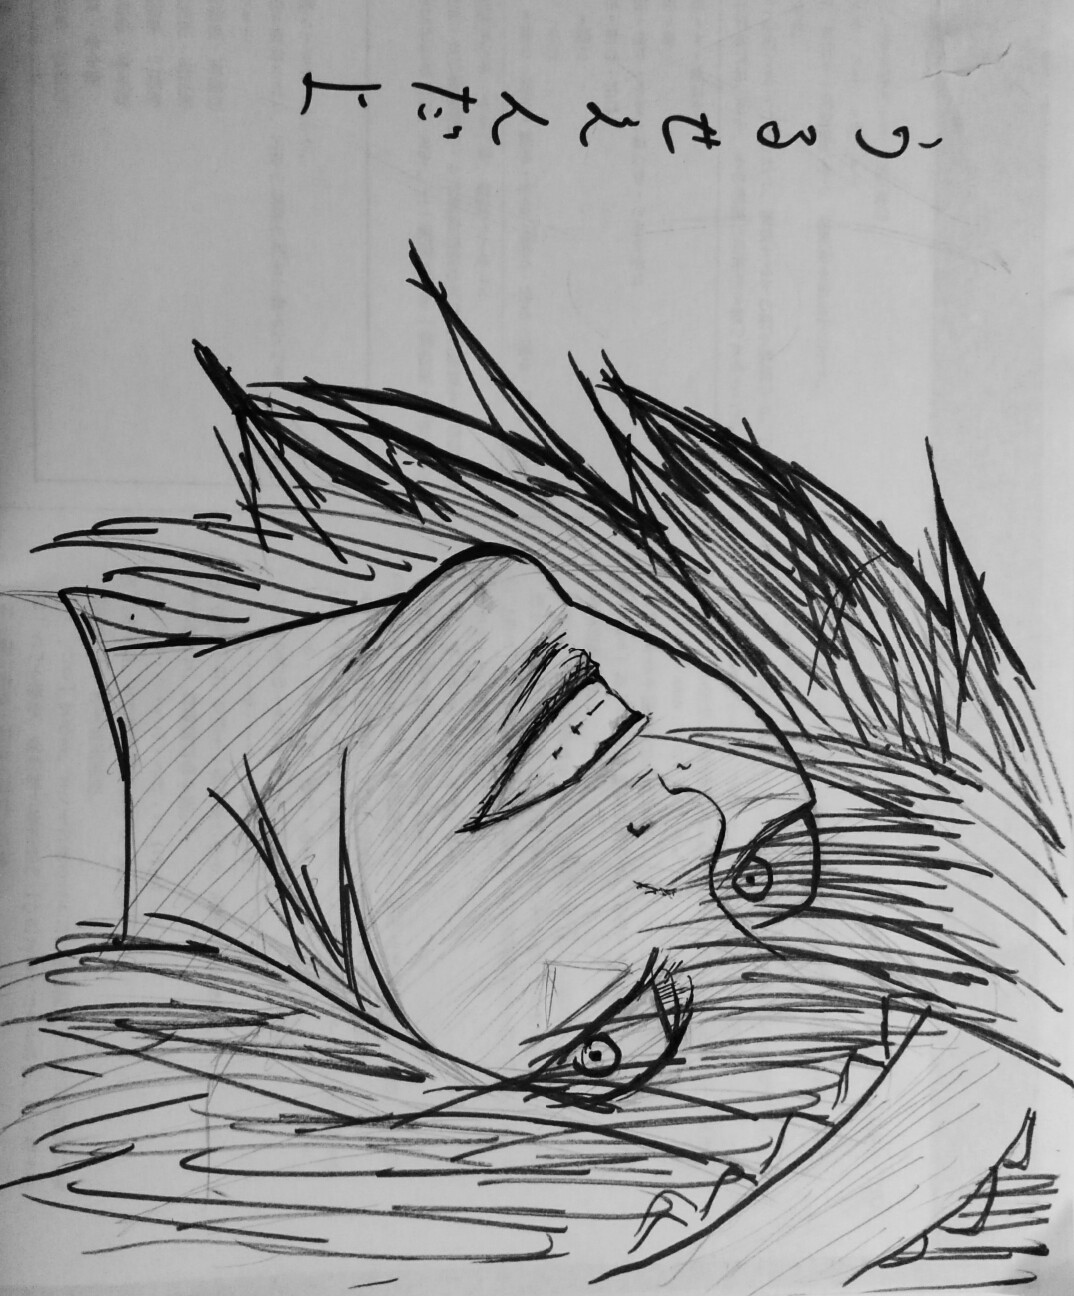 うるせえんだよ